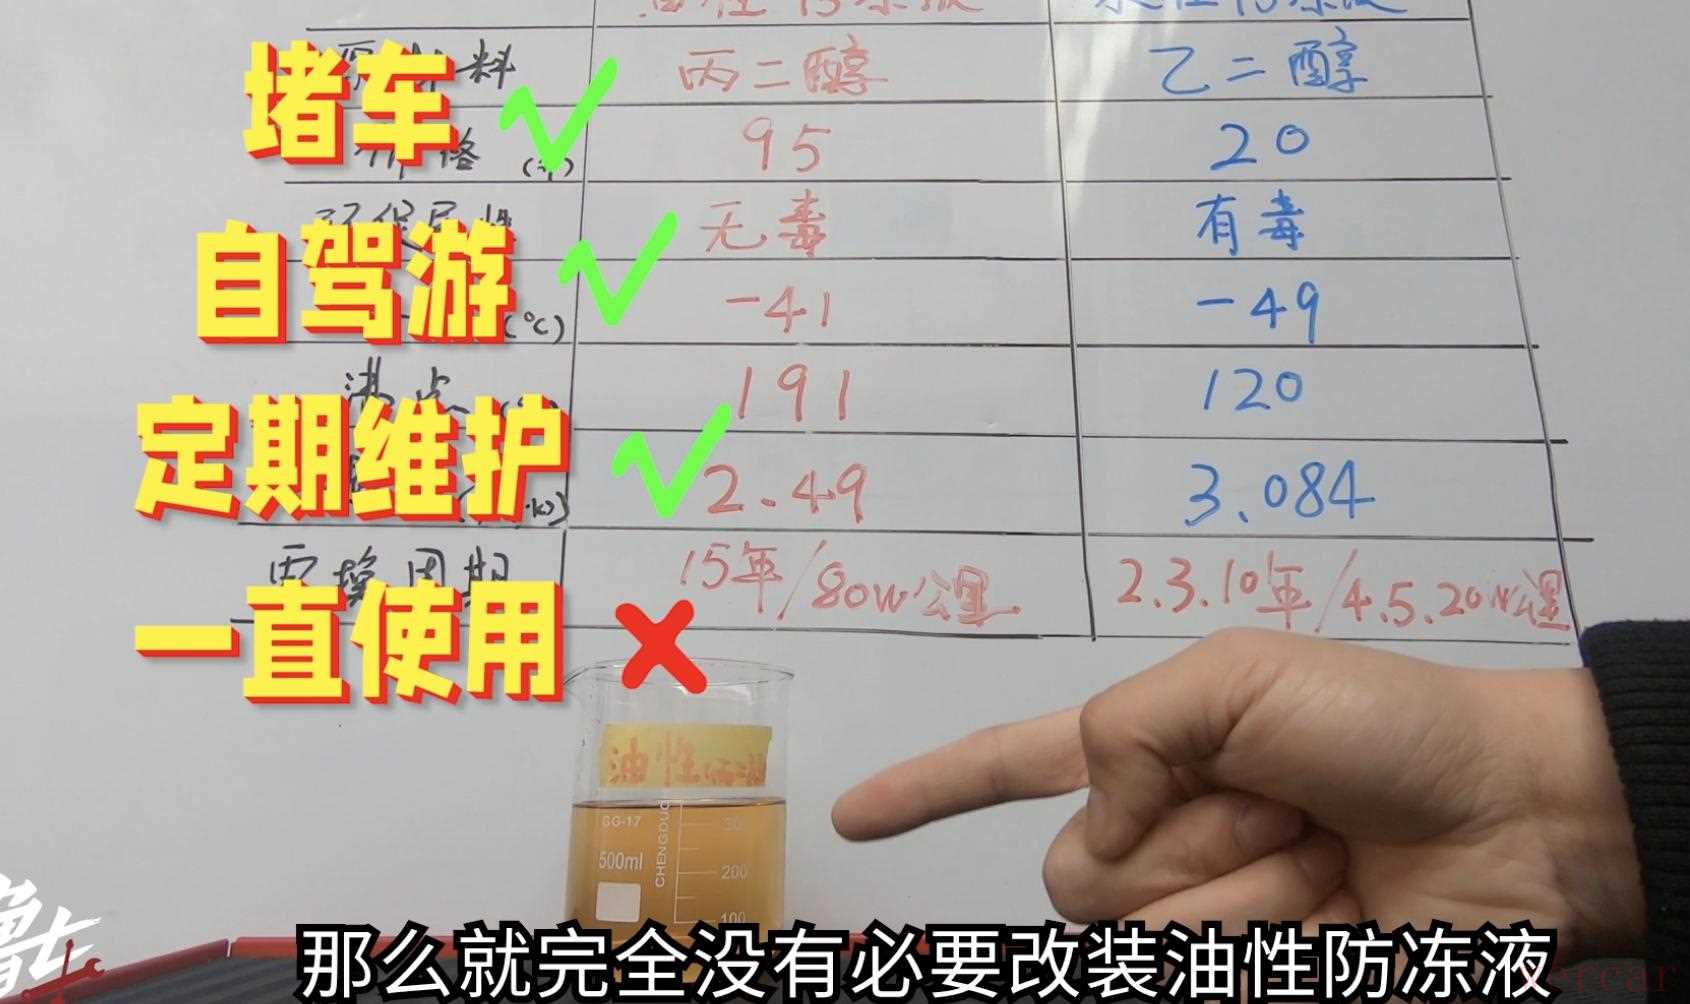 油性防冻液 水性防冻液
料 丙二醇 乙二醇
堵车
格 95 20
环保 无毒 有毒
自驾游
(℃) -41 -49
沸点 191 120
定期维护
2.49 3.084
更换周期 15年/80W公里 2.3.10年/4.5.20W公里
一直使用
油性
GG-17
500ml
CHENGDU
200
100
那么就完全没有必要改装油性防冻液